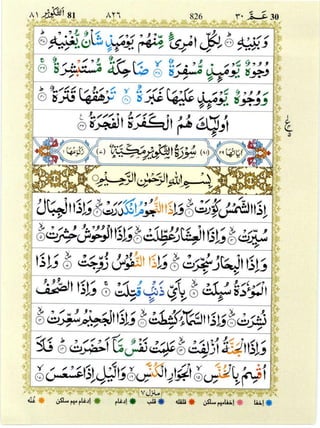 ٨١ التكوير 81 ٨٢٦ 826 عـم ٣٠ 30
وَبَنِيْهِ ۟ؕ لِكُلِّ امْرِئٍ مِّنْهُمْ يَوْمَىِٕذٍ شَاْنٌ يُّغْنِيْهِ ۟ؕ
وُجُوْهٌ يَّوْمَىِٕذٍ مُّسْفِرَةٌ ۟ۙ ضَاحِكَةٌ مُّسْتَبْشِرَةٌ ۟ۚ
وَوُجُوْهٌ يَّوْمَىِٕذٍ عَلَيْهَا غَبَرَةٌ ۟ۙ تَرْهَقُهَا قَتَرَةٌ ۟ؕ
اُولٰٓىِٕكَ هُمُ الْكَفَرَةُ الْفَجَرَةُ ۟
اٰيَاتُهَا ٢٩ (٨١) سُوْرَةُ التَّكْوِيْرِ مَكِّيَّةٌ (٧) رُكُوْعُهَا ١
بِسْمِ اللّٰهِ الرَّحْمٰنِ الرَّحِيْمِ
اِذَا الشَّمْسُ كُوِّرَتْ ۟ وَاِذَا النُّجُوْمُ انْكَدَرَتْ ۟ وَاِذَا الْجِبَالُ
سُيِّرَتْ ۟ وَاِذَا الْعِشَارُ عُطِّلَتْ ۟ وَاِذَا الْوُحُوْشُ حُشِرَتْ ۟
وَاِذَا الْبِحَارُ سُجِّرَتْ ۟ وَاِذَا النُّفُوْسُ زُوِّجَتْ ۟ وَاِذَا
الْمَوْءٗدَةُ سُىِٕلَتْ ۟ بِاَيِّ ذَنْۢبٍ قُتِلَتْ ۟ وَاِذَا الصُّحُفُ
نُشِرَتْ ۟ وَاِذَا السَّمَآءُ كُشِطَتْ ۟ وَاِذَا الْجَحِيْمُ سُعِّرَتْ ۟
وَاِذَا الْجَنَّةُ اُزْلِفَتْ ۟ عَلِمَتْ نَفْسٌ مَّاۤ اَحْضَرَتْ ۟ فَلَاۤ
اُقْسِمُ بِالْخُنَّسِ ۟ الْجَوَارِ الْكُنَّسِ ۟ وَالَّيْلِ اِذَا عَسْعَسَ ۟
منزل ٧
اخفا اخفاء ميم ساكن قلقله قلب ادغام ادغام ميم ساكن غنه